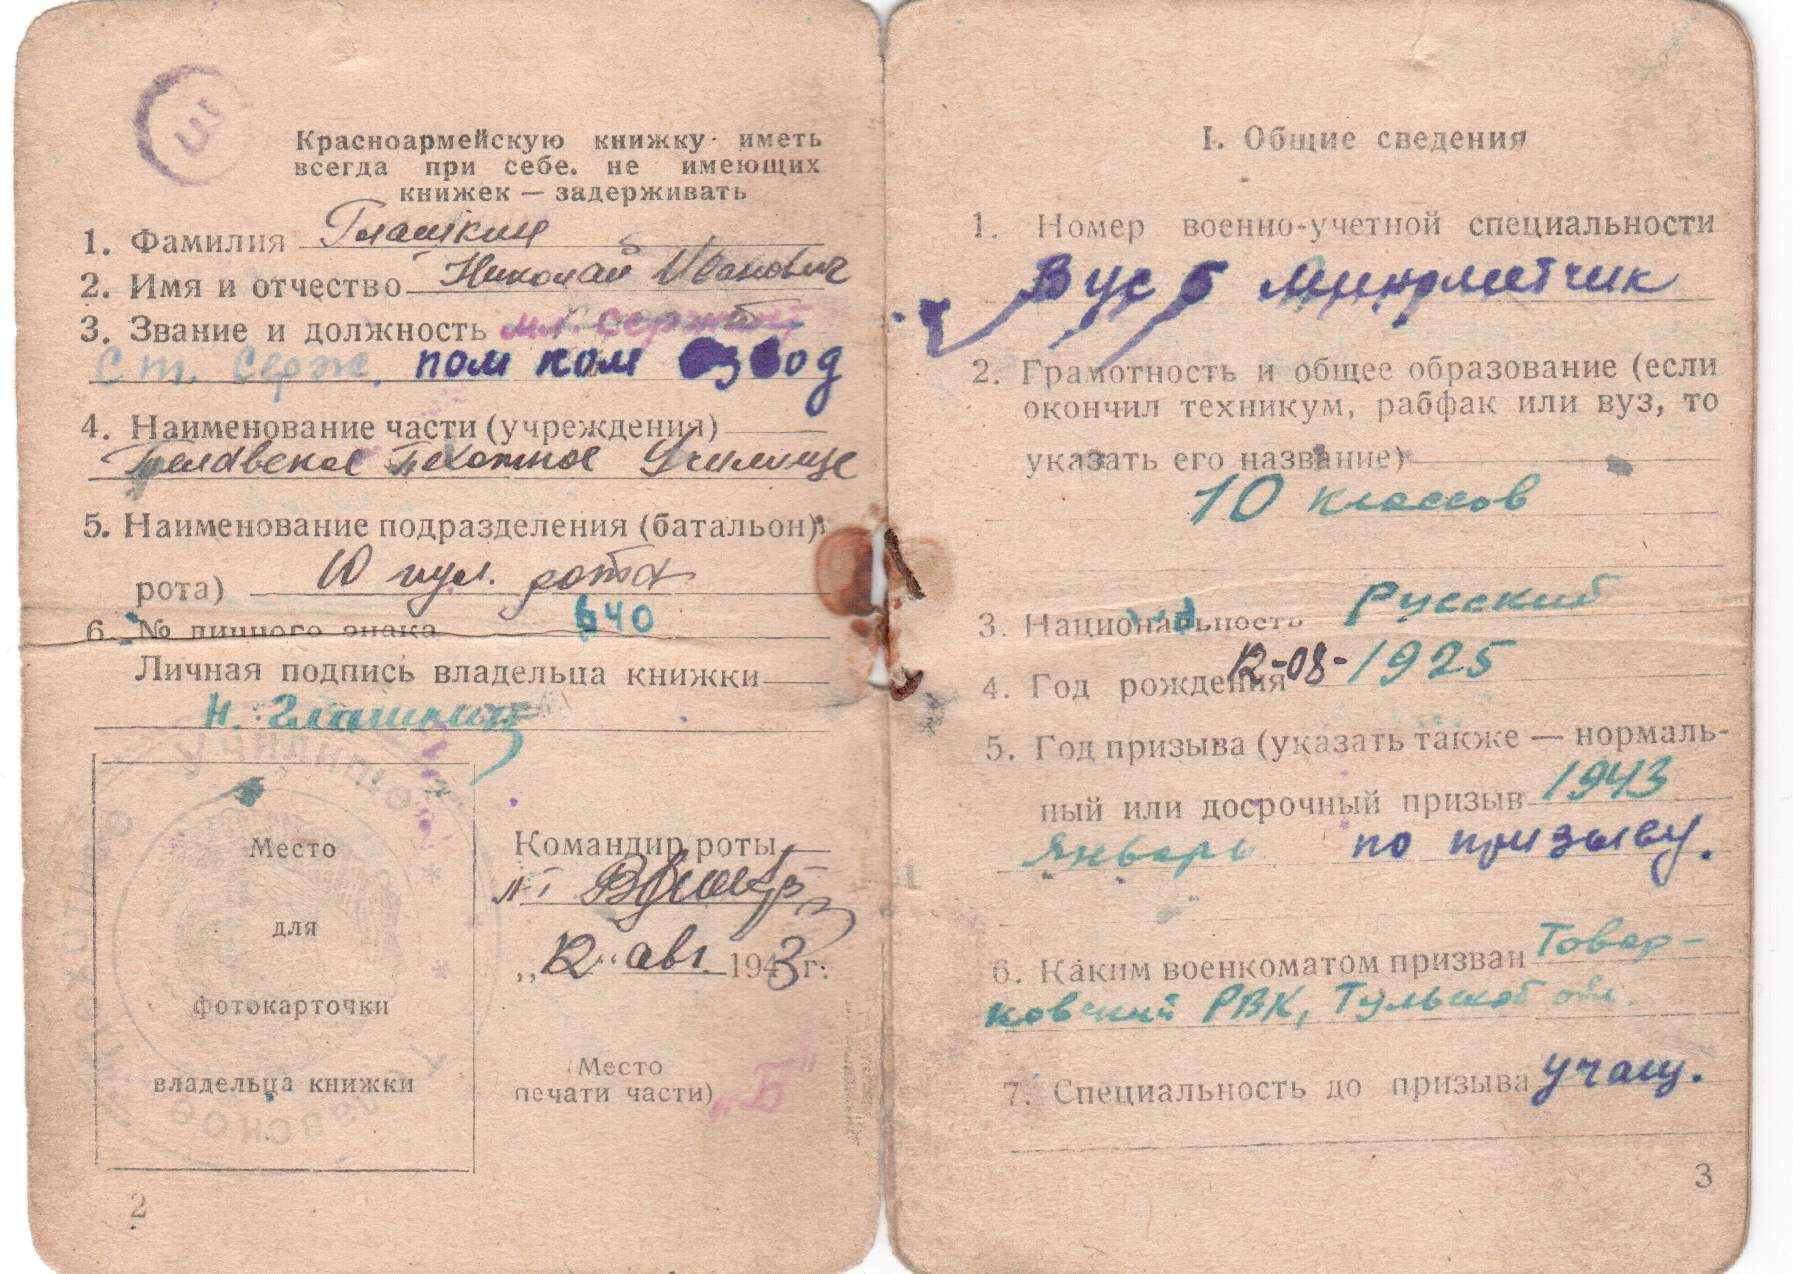 Ш
Красноармейскую книжку иметь
всегда при себе. не имеющих
книжек — задерживать
1. Фамилия Глашкин
2. Имя и отчество Николай Иванович
3. Звание и должность мл. сержант
Ст. Серж. пом ком взвод
4. Наименование части (учреждения)
Пехотное Училище
5. Наименование подразделения (батальон,
рота) 10 пул. рота
6. № личного знака 640
Личная подпись владельца книжки
Н. Глашкин
Место
для
фотокарточки
владельца книжки
Командир роты
„12“ авг. 1943 г.
(Место
печати части) „Б“
2
I. Общие сведения
1. Номер военно-учетной специальности
Вус 5 Минометчик
2. Грамотность и общее образование (если
окончил техникум, рабфак или вуз, то
указать его название)
10 классов
3. Национальность Русский
4. Год рождения 12-08-1925
5. Год призыва (указать также — нормаль-
ный или досрочный призыв 1943
Январь по призыву.
6. Каким военкоматом призван Товар-
ковский РВК, Тульской обл.
7. Специальность до призыва учащ.
3